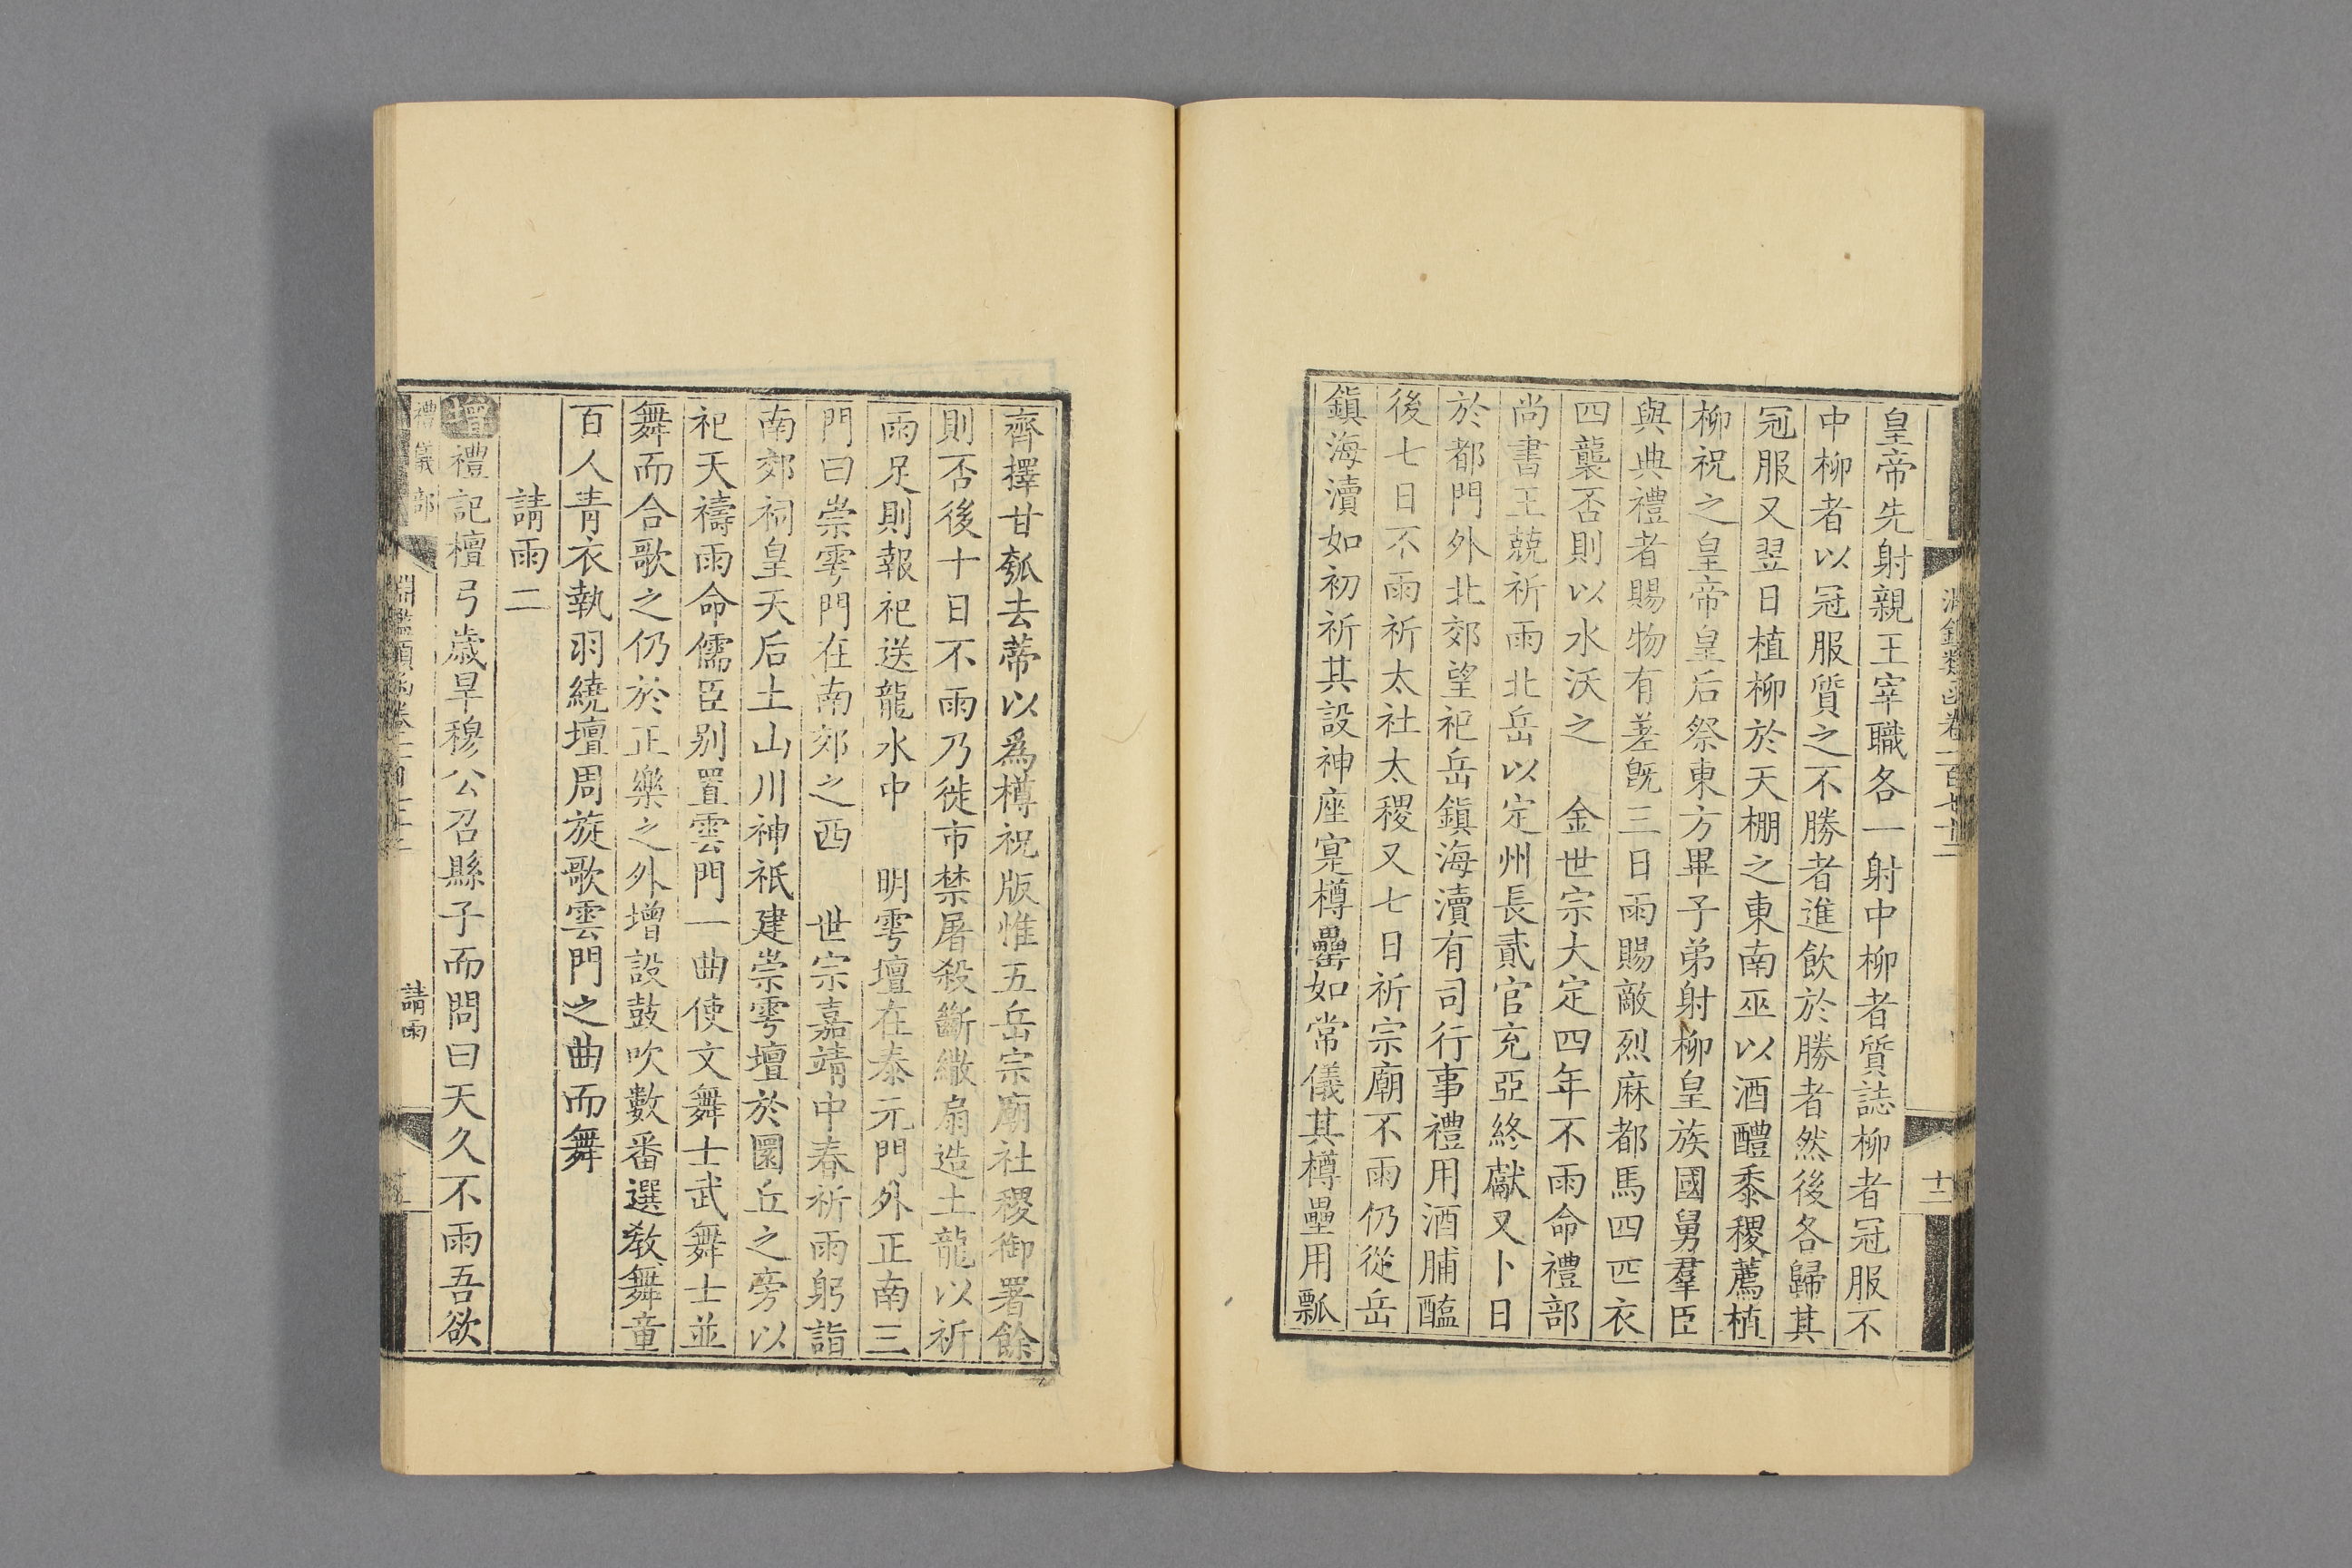 淵鑑類函卷一百七十二
十二
皇帝先射親王宰職各一射中柳者質誌柳者冠服不
中柳者以冠服質之不勝者進飲於勝者然後各歸其
冠服又翌日植柳於天棚之東南巫以酒醴黍稷薦植
柳祝之皇帝皇后祭東方畢子弟射柳皇族國舅羣臣
與典禮者賜物有差旣三日雨賜敵烈麻都馬四匹衣
四襲否則以水沃之　金世宗大定四年不雨命禮部
尚書王兢祈雨北岳以定州長貳官充亞終獻又卜日
於都門外北郊望祀岳鎮海瀆有司行事禮用酒脯醢
後七日不雨祈太社太稷又七日祈宗廟不雨仍從岳
鎮海瀆如初祈其設神座寔樽罍如常儀其樽罍用瓢
齊擇甘瓠去蒂以爲樽祝版惟五岳宗廟社稷御署餘
則否後十日不雨乃徙市禁屠殺斷繖扇造土龍以祈
雨足則報祀送龍水中　明雩壇在泰元門外正南三
門曰崇雩門在南郊之西　世宗嘉靖中春祈雨躬詣
南郊祠皇天后土山川神祇建崇雩壇於圜丘之旁以
祀天禱雨命儒臣別置雲門一曲使文舞士武舞士並
舞而合歌之仍於正樂之外增設鼓吹數番選敎舞童
百人靑衣執羽繞壇周旋歌雲門之曲而舞
請雨二
增禮記檀弓歲旱穆公召縣子而問曰天久不雨吾欲
禮儀部
淵鑑類函卷一百七十二
請雨